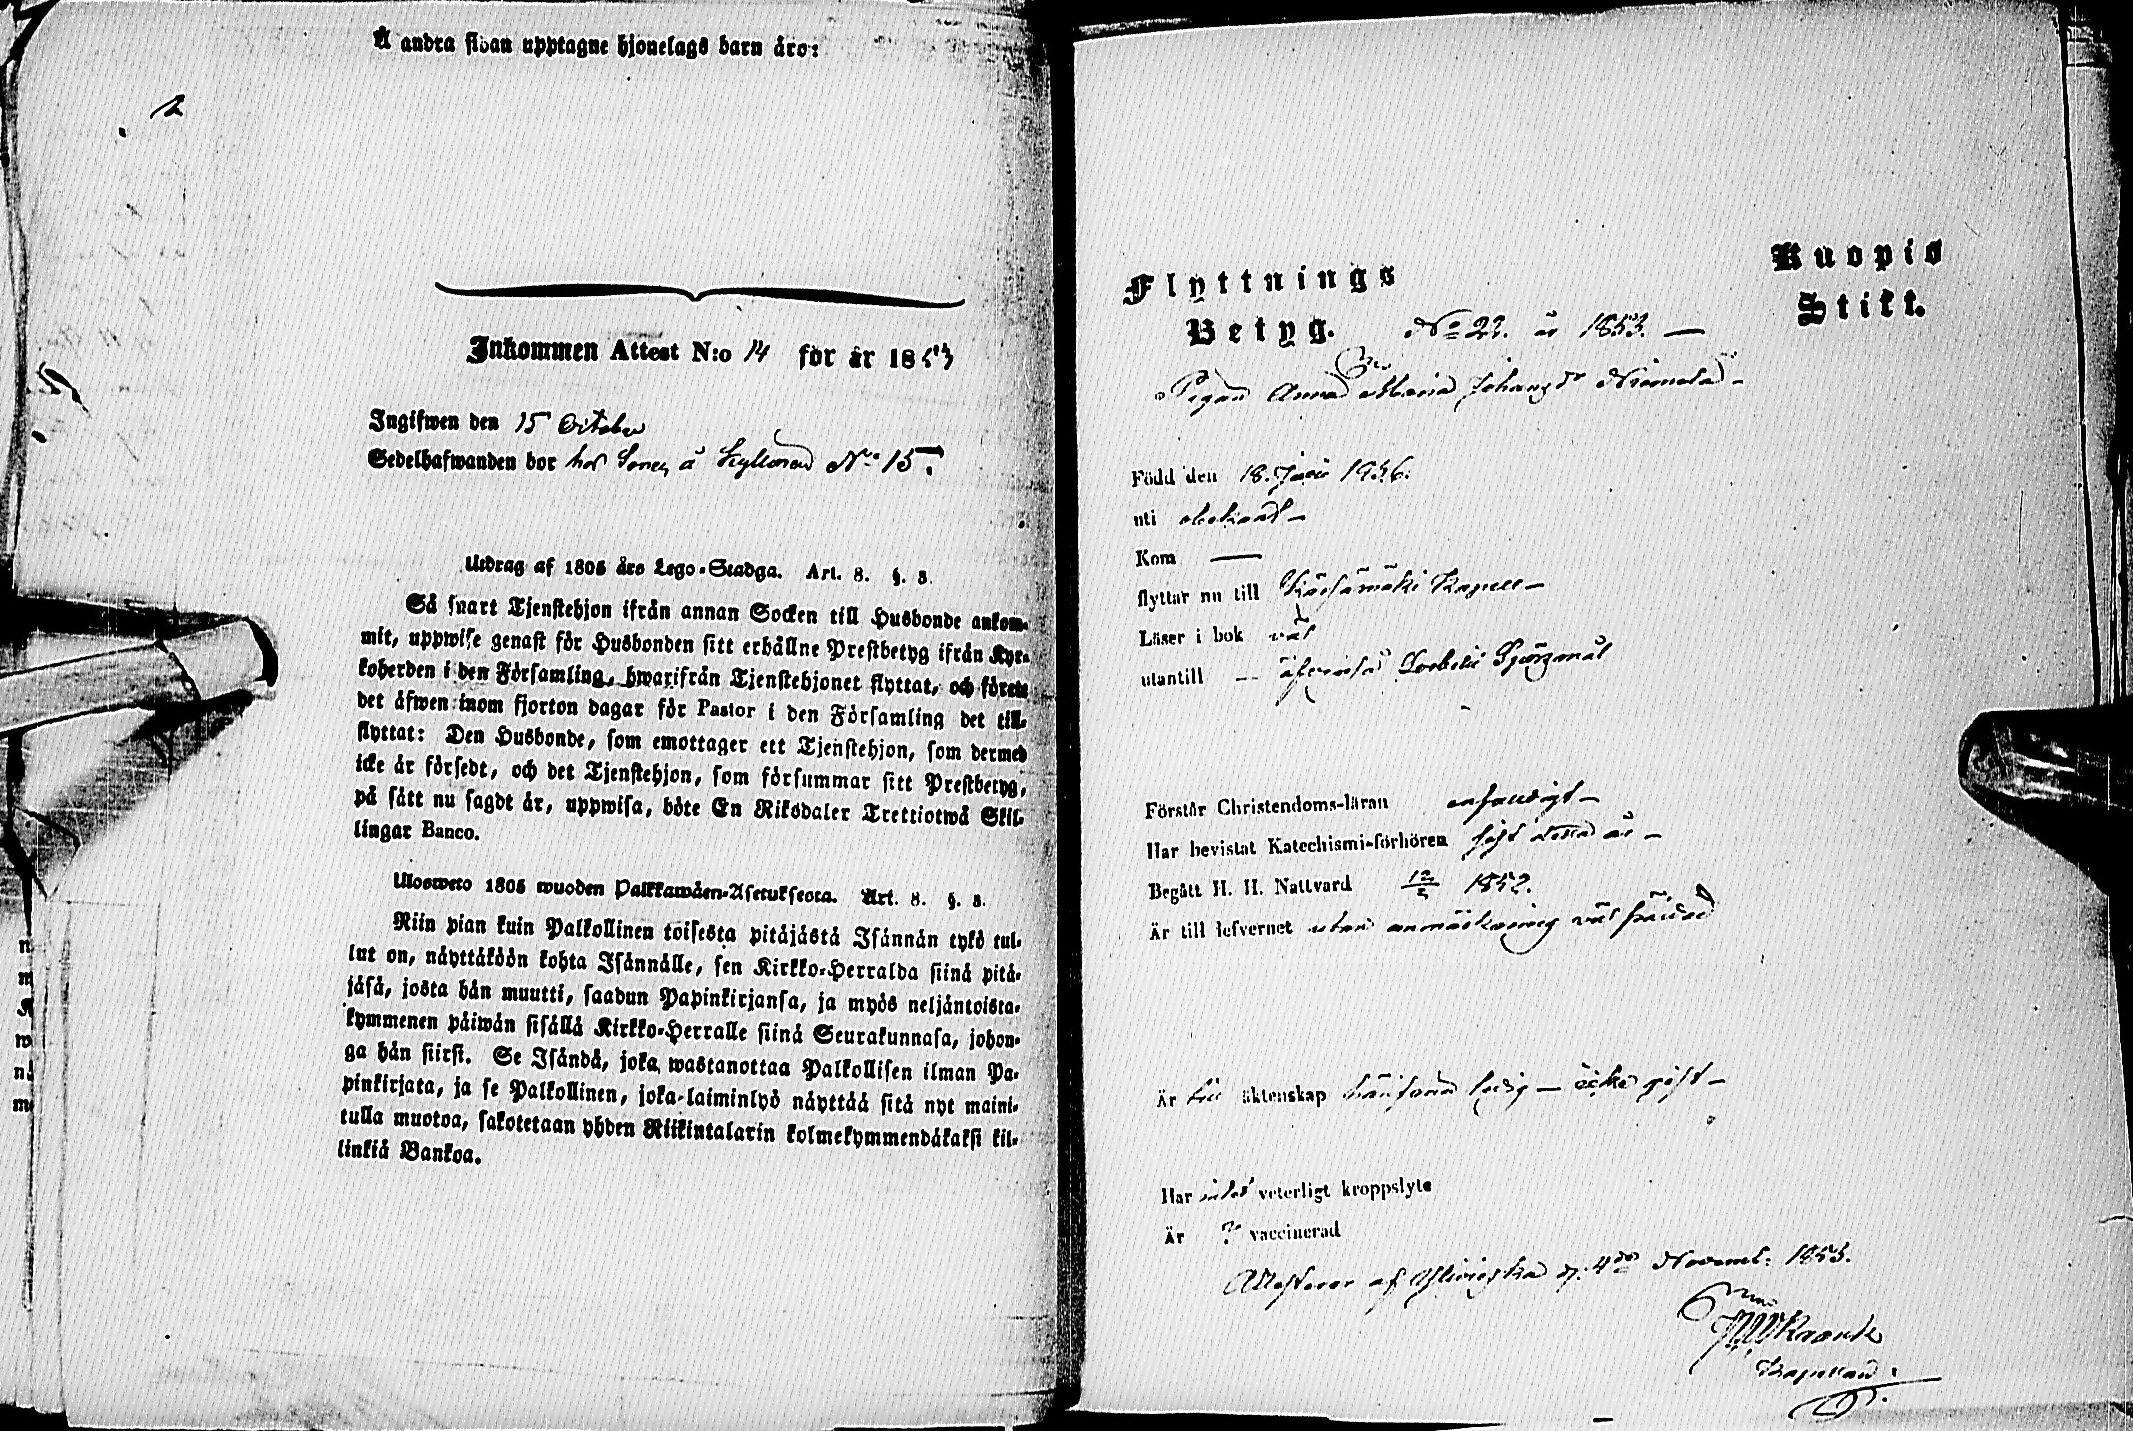 Å andra sidan upptagne hjonelags barn äro:
2
Inkommen Attest N:o 14 för år 1853
Ingifwen den 15 October
Sedelhafwanden bor hos å N:o 15.
Utdrag af 1805 års Lego-Stadga. Art. 8. §. 3.
Så snart Tjenstehjon ifrån annan Socken till Husbonde ankom-
mit, uppwise genast för Husbonden sitt erhållne Prestbetyg ifrån Kyr-
koherden i den Församling, hwarifrån Tjenstehjonet flyttat, och förete
det äfwen inom fjorton dagar för Pastor i den Församling det till-
flyttat: Den Husbonde, som emottager ett Tjenstehjon, som dermed
icke är försedt, och det Tjenstehjon, som försummar sitt Prestbetyg,
på sätt nu sagdt är, uppwisa, böte En Riksdaler Trettiotwå Skil-
lingar Banco.
Ulosweto 1805 wuoden Palkkawäen-Asetuksesta. Art. 8. §. 3.
Niin pian kuin Palkollinen toisesta pitäjästä Isännän tykö tul-
lut on, näyttäköön kohta Isännälle, sen Kirkko-Herralda siinä pitä-
jäsä, josta hän muutti, saadun Papinkirjansa, ja myös neljäntoista-
kymmenen päiwän sisällä Kirkko-Herralle siinä Seurakunnasa, johon-
ga hän siirsi. Se Isändä, joka wastanottaa Palkollisen ilman Pa-
pinkirjata, ja se Palkollinen, joka laiminlyö näyttää sitä nyt maini-
tulla muotoa, sakotetaan yhden Riikintalarin kolmekymmendäkaksi kil-
linkiä Bankoa.
Flyttnings
Kuopio
Betyg. No 22. år 1853. —
Stift.
Pigan Anna Maria Johansdr Niemelä —
Född den 18. 1836.
uti
Kom —
flyttar nu till Kärsämäki Kapell —
Läser i bok väl
utantill — Svebelii Spörsmål
Förstår Christendoms-läran enfaldigt —
Har bevistat Katechismi-förhören sist detta år —
Begått H. H. Nattvard 12/5 1852.
Är till lefvernet utan anmärkning väl fräjdad
Är till äktenskap härifrån ledig — icke gift —
Har intet veterligt kroppslyte
Är ? vaccinerad
Attesterar af Ylivieska d. 4de Novemb. 1853.
Kapellan.